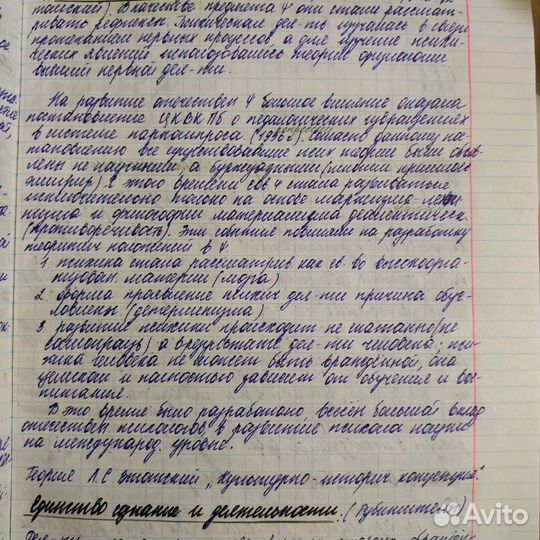 тальской). В качестве предмета Ч они стали рассмат-
ривать рефлексы. Психическая дея-ть изучалась в свете
протекания нервных процессов, а для изучение психи-
ческих явлений использовалась теория
высшей нервной дея-ти.
На развитие отечествен Ч большое влияние оказала
постановление ЦК ВК Пб о педологических извращениях
в системе наркомпроса (1936г). Согласно данному, пос-
тановлению все существовавшие псих теории были объяв-
лены не научными, а буржуазными
С этого времени сов Ч стала развиваться
исключительно только на основе марксизма-лени-
низма и философии материализма диалектическ
(противоречивость). Эти событие повлияло на разработку
теоретич положений в Ч.
1. психика стала рассматрив. как св. во высокоорга-
низован. материи (мозга)
2. форма проявление психич дея-ти причина обус-
ловлены (детерминизма)
3. развитие психики происходит не спонтанно/не
а в результате дея-ти человека; пси-
хика человека не может быть врождённой, она
целиком и полностью зависит от обучения и вос-
питания.
В это время было разработано, весьён большой вклад
отечествен психологов, в развитие психола науки
на международ. уровне.
Теория Л.С "Культурно-историч. концепция".
Единство сознание и деятельности. (Рубинштейн)
Avito